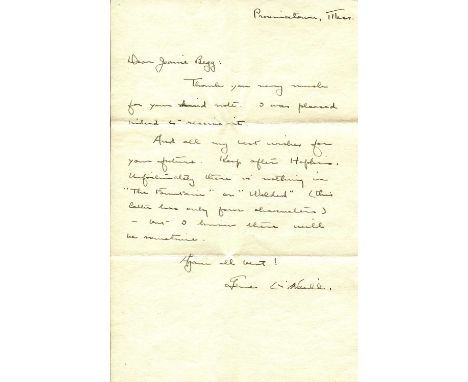 Provincetown, Mass.
Dear Jeanie Begg:
Thank you very much
for your kind note. I was pleased
indeed to receive it.
And all my best wishes for
your future. Keep after Hopkins.
Unfortunately there is nothing in
"The Fountain" or "Welded" (this
latter has only four characters)
- but I know there will
be sometime.
Again all best!
Eugene O'Neill.